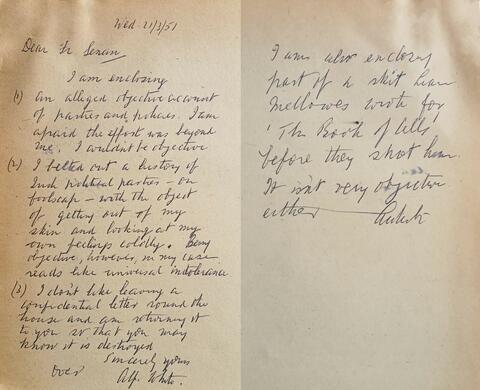 Wed. 21/3/51
Dear Fr Senan,
I am enclosing
(1) An alleged objective account
of parties and policies. I am
afraid the effort was beyond
me. I wouldn't be objective
(2) I belted out a history of
Irish political parties - on
foolscap - with the object
of getting out of my
skin and looking at my
own feelings coldly. Being
objective, however, in my case
reads like universal intolerance
(3) I don't like leaving a
confidential letter round the
house and am returning it
to you so that you may
know it is destroyed
Sincerely yours
Over Alf. White.
I am also enclosing
part of a skit Liam
Mellowes wrote for
'The Book of Cells'
before they shot him.
It isn't very objective
either